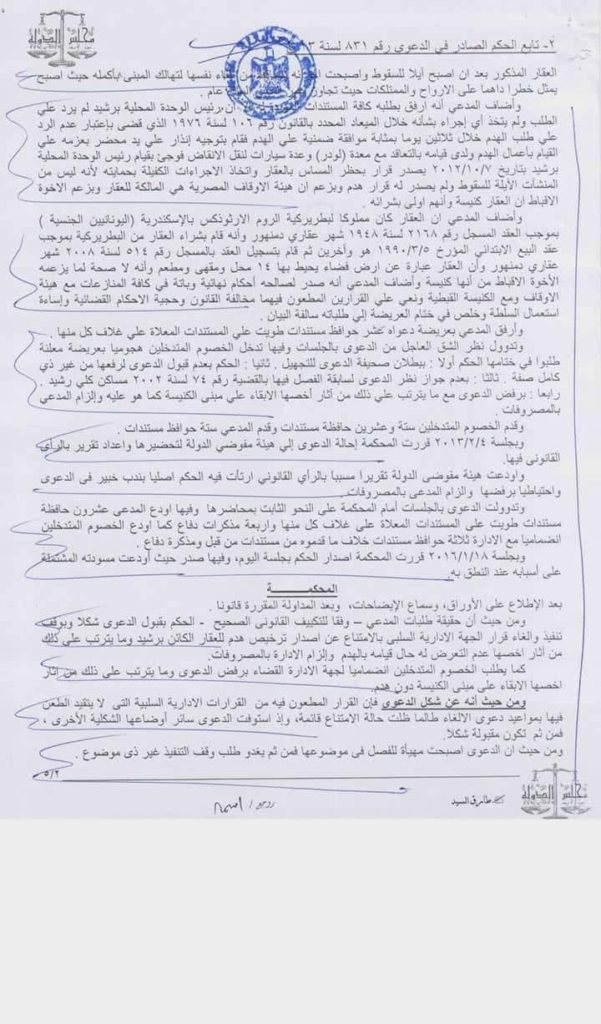 مجلس الدولة
٢- تابع الحكم الصادر في الدعوي رقم ٨٣١ لسنة
العقار المذكور بعد ان اصبح آيلا للسقوط واصبحت نفسها لتهالك المبنى بأكمله حيث اصبح
يمثل خطرا داهما على الارواح والممتلكات حيث عام .
وأضاف المدعي أنه ارفق بطلبه كافة المستندات رئيس الوحدة المحلية برشيد لم يرد علي
الطلب ولم يتخذ أي إجراء بشأنه خلال الميعاد المحدد بالقانون رقم ١٠٦ لسنة ١٩٧٦ الذي قضى بإعتبار عدم الرد
علي طلب الهدم خلال ثلاثين يوما بمثابة موافقة ضمنية علي الهدم فقام بتوجيه إنذار علي يد محضر بعزمه علي
القيام بأعمال الهدم ولدى قيامه بالتعاقد مع معدة (لودر) وعدة سيارات لنقل الانقاض فوجئ بقيام رئيس الوحدة المحلية
برشيد بتاريخ ٢٠١٢/١٠/٧ يصدر قرار بحظر المساس بالعقار واتخاذ الاجراءات الكفيلة بحمايته لأنه ليس من
المنشآت الآيلة للسقوط ولم يصدر له قرار هدم وبزعم ان هيئة الاوقاف المصرية هي المالكة للعقار وبزعم الاخوة
الاقباط ان العقار كنيسة وأنهم اولى بشرائه .
وأضاف المدعي ان العقار كان مملوكا لبطريركية الروم الارثوذكس بالإسكندرية (اليونانيين الجنسية )
بموجب العقد المسجل رقم ٢١٦٨ لسنة ١٩٤٨ شهر عقاري دمنهور وأنه قام بشراء العقار من البطريركية بموجب
عقد البيع الابتدائي المؤرخ ١٩٩٠/٣/٥ هو وأخرين ثم قام بتسجيل العقد بالمسجل رقم ٥١٤ لسنة ٢٠٠٨ شهر
عقاري دمنهور وأن العقار عبارة عن ارض فضاء يحيط بها ١٤ محل ومقهى ومطعم وأنه لا صحة لما يزعمه
الأخوة الاقباط من أنها كنسية وأضاف المدعي أنه صدر لصالحه أحكام نهائية وباتة في كافة المنازعات مع هيئة
الاوقاف ومع الكنيسة القبطية ونعي علي القرارين المطعون فيهما مخالفة القانون وحجية الاحكام القضائية وإساءة
استعمال السلطة وخلص في ختام العريضة إلي طلباته سالفة البيان .
وأرفق المدعي بعريضة دعواه عشر حوافظ مستندات طويت علي المستندات المعلاة علي غلاف كل منها .
وتدوول نظر الشق العاجل من الدعوى بالجلسات وفيها تدخل الخصوم المتدخلين هجوميا بعريضة معلنة
طلبوا في ختامها الحكم أولا : ببطلان صحيفة الدعوى للتجهيل . ثانيا : الحكم بعدم قبول الدعوى لرفعها من غير ذي
كامل صفة . ثالثا : بعدم جواز نظر الدعوى لسابقة الفصل فيها بالقضية رقم ٧٤ لسنة ٢٠٠٢ مساكن كلي رشيد .
رابعا : برفض الدعوى مع ما يترتب علي ذلك من آثار أخصها الابقاء علي مبنى الكنيسة كما هو عليه وإلزام المدعي
بالمصروفات .
وقدم الخصوم المتدخلين ستة وعشرين حافظة مستندات وقدم المدعي ستة حوافظ مستندات .
وبجلسة ٢٠١٣/٢/٤ قررت المحكمة إحالة الدعوى إلي هيئة مفوضي الدولة لتحضيرها واعداد تقرير بالرأي
القانوني فيها.
واودعت هيئة مفوضي الدولة تقريرا مسببا بالرأي القانوني ارتأت فيه الحكم اصليا بندب خبير فى الدعوى
واحتياطيا برفضها والزام المدعى بالمصروفات.
وتدوولت الدعوى بالجلسات أمام المحكمة على النحو الثابت بمحاضرها وفيها اودع المدعى عشرون حافظة
مستندات طويت على المستندات المعلاة على غلاف كل منها واربعة مذكرات دفاع كما اودع الخصوم المتدخلين
انضماميا مع الادارة ثلاثة حوافظ مستندات خلاف ما قدموه من مستندات من قبل ومذكرة دفاع .
وبجلسة ٢٠١٦/١/١٨ قررت المحكمة اصدار الحكم بجلسة اليوم، وفيها صدر حيث أودعت مسودته المشتملة
على أسبابه عند النطق به.
المحكمـــــة
بعد الإطلاع على الأوراق، وسماع الإيضاحات، وبعد المداولة المقررة قانونا .
ومن حيث أن حقيقة طلبات المدعي – وفقا للتكييف القانونى الصحيح - الحكم بقبول الدعوى شكلا وبوقف
تنفيذ والغاء قرار الجهة الادارية السلبي بالامتناع عن اصدار ترخيص هدم للعقار الكائن برشيد وما يترتب علي ذلك
من آثار اخصها عدم التعرض له حال قيامه بالهدم وإلزام الادارة بالمصروفات.
كما يطلب الخصوم المتدخلين انضماميا لجهة الادارة القضاء برفض الدعوى وما يترتب علي ذلك من آثار
اخصها الابقاء على مبنى الكنيسة دون هدم.
ومن حيث أنه عن شكل الدعوى فإن القرار المطعون فيه من القرارات الادارية السلبية التى لا يتقيد الطعن
فيها بمواعيد دعوى الالغاء طالما ظلت حالة الامتناع قائمة، وإذ استوفت الدعوى سائر أوضاعها الشكلية الأخرى ،
فمن ثم تكون مقبولة شكلا.
ومن حيث ان الدعوى اصبحت مهيأة للفصل فى موضوعها فمن ثم يغدو طلب وقف التنفيذ غير ذى موضوع .
٥/٢
طارق السيد
مجلس الدولة